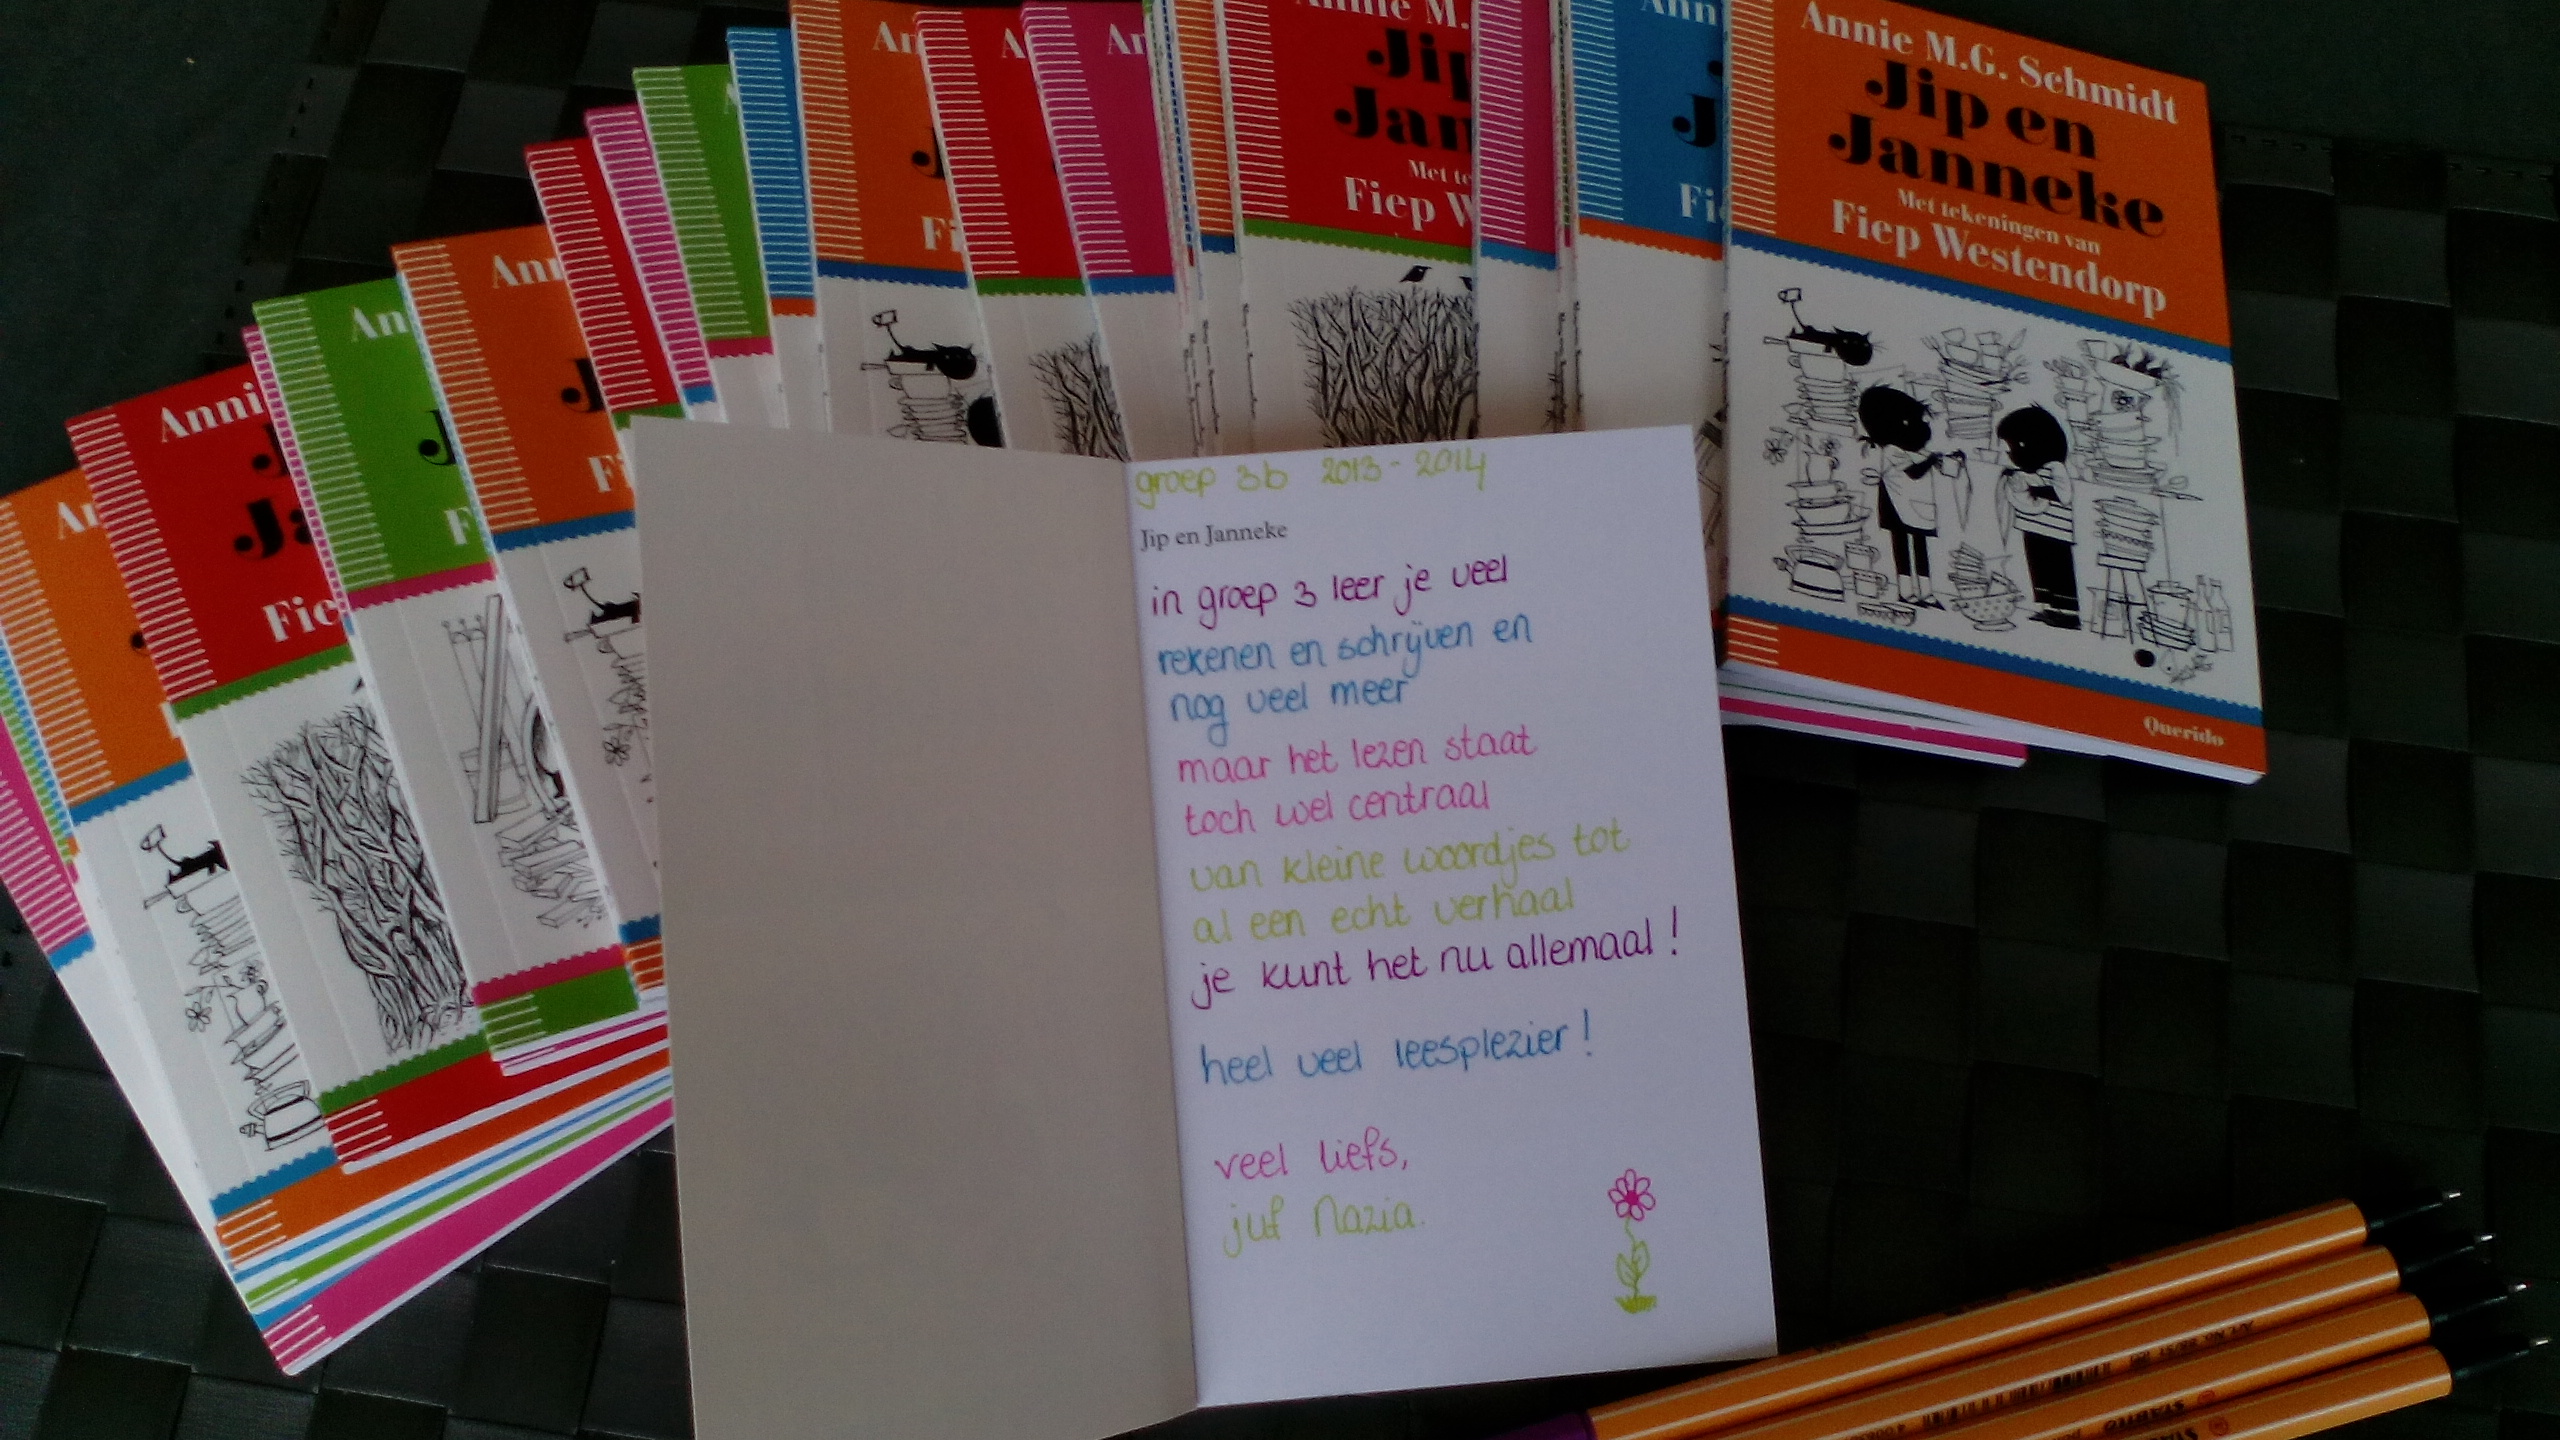 Annie M.G. Schmidt
Jip en
Janneke
Met tekeningen van
Fiep Westendorp
Querido
groep 3b 2013-2014
Jip en Janneke
in groep 3 leer je veel
rekenen en schrijven en
nog veel meer
maar het lezen staat
toch wel centraal
van kleine woordjes tot
al een echt verhaal
je kunt het nu allemaal!
heel veel leesplezier!
veel liefs,
juf Nazia.